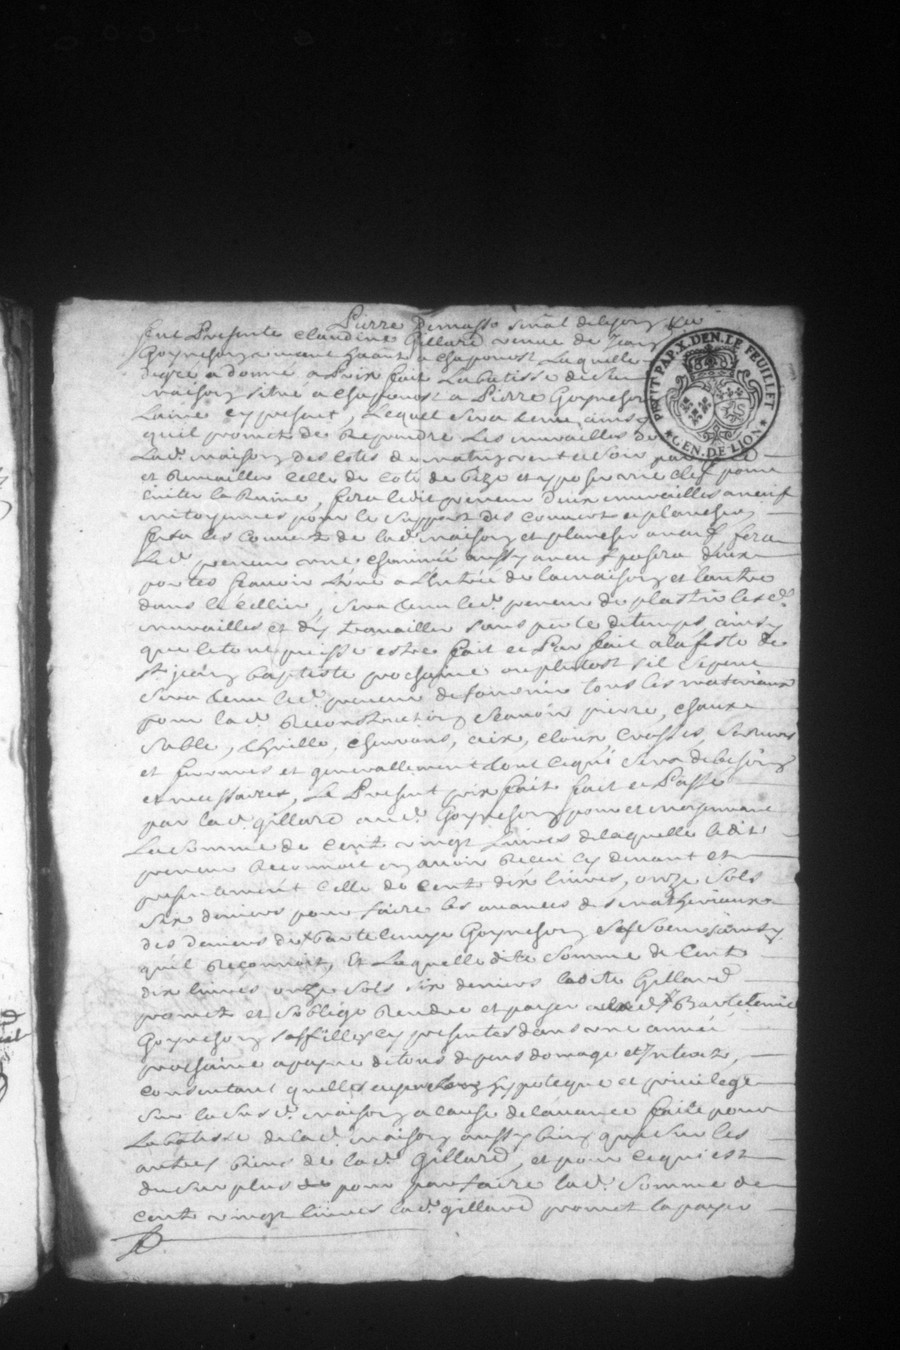 Pierre
fut Presente claudine Gillard veuve de Jean
Goyneson a chaponost Laquelle
degre a donné a Prix fait La batisse de Sa
maison situé a chaponost a Pierre Goyneson
Laine cy present, Lequel Sera tenu ainsy
quil promet de Reprendre Les murailles de
Lad. maison des cotés de matin vent et Soir
et Remailler celle du coté de bize et y poser une clef pour
eviter la Ruine, fera ledit preneur deux murailles a neuf
mitoyennes pour le Support des couverts et planchers
fera les couverts de lad. maison et plancher a neuf fera
Led. preneur une cheminée aussy a neuf y posera deux
portes scavoir L'une a L'entrée de la maison et lautre
dans le cellier, Sera tenu led. preneur de plastrir lesd.
murailles et d'y travailler Sans perte de temps, ainsy
que le tout puisse estre fait et Par fait a la feste de
St. jean baptiste prochaine ou plutost S'il Se peut
Sera tenu led. preneur de fournir tous les materiaux
pour lad. Reconstruction Scavoir pierre, chaux
Sable, Thuille, chevrons, aix, cloux Crosses, Serrures
et ferrures et generallement tout ce qui Sera de besoin
et necessaires, Le Present prix fait fait et Passé
par lad. gillard aud. Goyneson pour et moyennant
La Somme de Cent vingt Livres de laquelle ledit
preneur Reconnoit en avoir Receu cy devant et
presentement celle de Cent dix livres, onze Sols
Six deniers pour faire les avances des matheriaux
des deniers de Bartelemye Goyneson
quil Reconnoit, Et Laquelle dite Somme de Cent
dix livres onze Sols six deniers ladite Gillard
promet et S'oblige Rendre et payer a lad. Bartelemie
Goyneson Sa fille cy presente dans une année
prochaine a peyne de tous depens domage et Interets,
consentant quelle hypoteque et privilege
Sur la Susd. maison a cause de l'avance faite pour
La batisse de lad. maison aussy bien que Sur les
autres biens de lad. Gillard, et pour ce qui est
du Surplus de pour parfaire lad. Somme de
cent vingt livres lad. gillard promet la payer
PETIT PAP. X. DEN. LE FEUILLET
GEN. DE LION